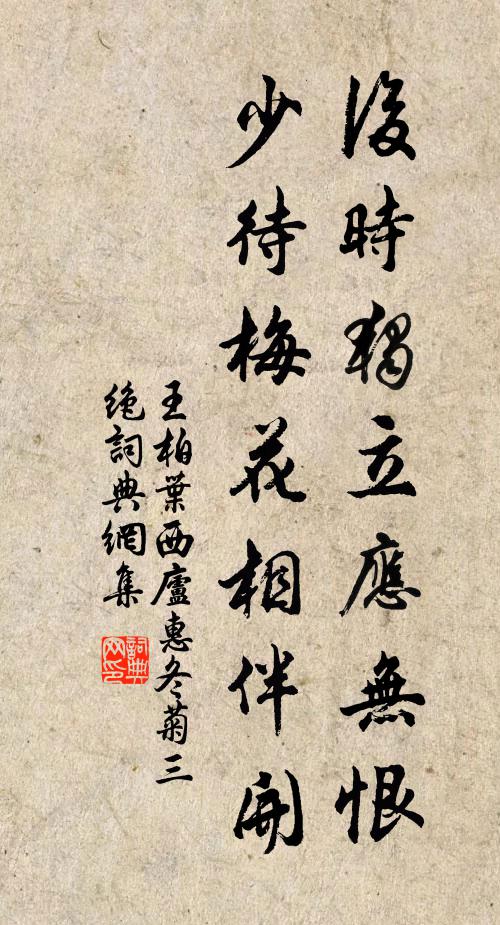 後時獨立應無恨
少待梅花相伴開
王柏葉西廬惠冬菊三
絶詞典網集
詞典
网印